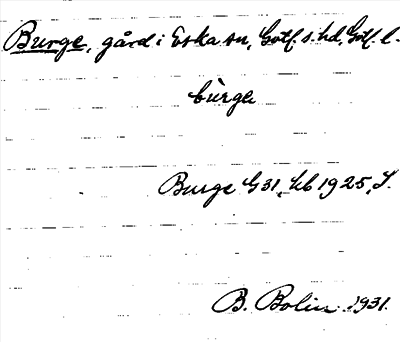 Burge, gård i Eska sn, Gotl. s. hd, Gotl. l.
bùrge
Burge G 31, hb 1925, S.
B. Bolin 1931.